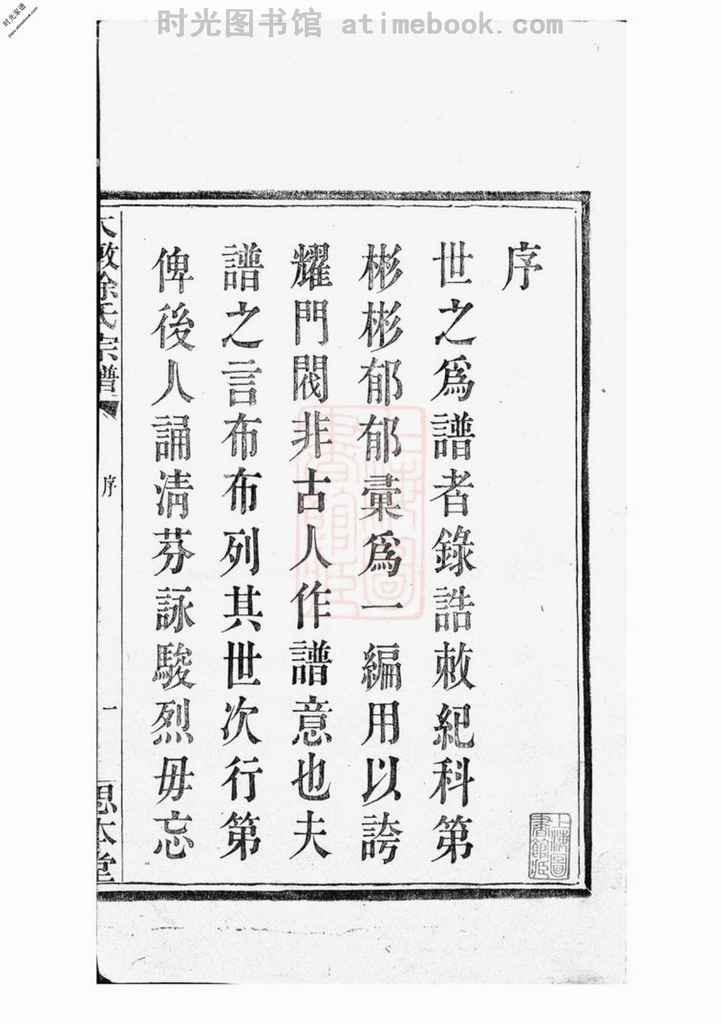 时光图书馆 atimebook.com
时光家谱
序
世之為譜者錄誥敕紀科第
彬彬郁郁彙為一編用以誇
耀門閥非古人作譜意也夫
譜之言布布列其世次行第
俾後人誦清芬詠駿烈毋忘
徐氏宗譜
序
一
思本堂
上海圖書館藏